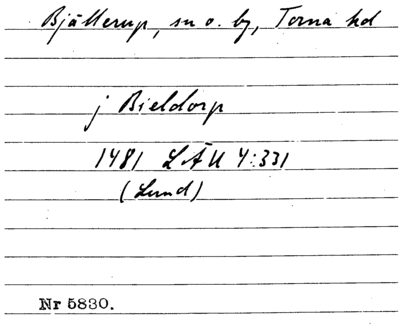 Bjällerup, sn o. by, Torna hd
j Bieldorp
1481 LÄU 4:331
(Lund)
Nr 5830.